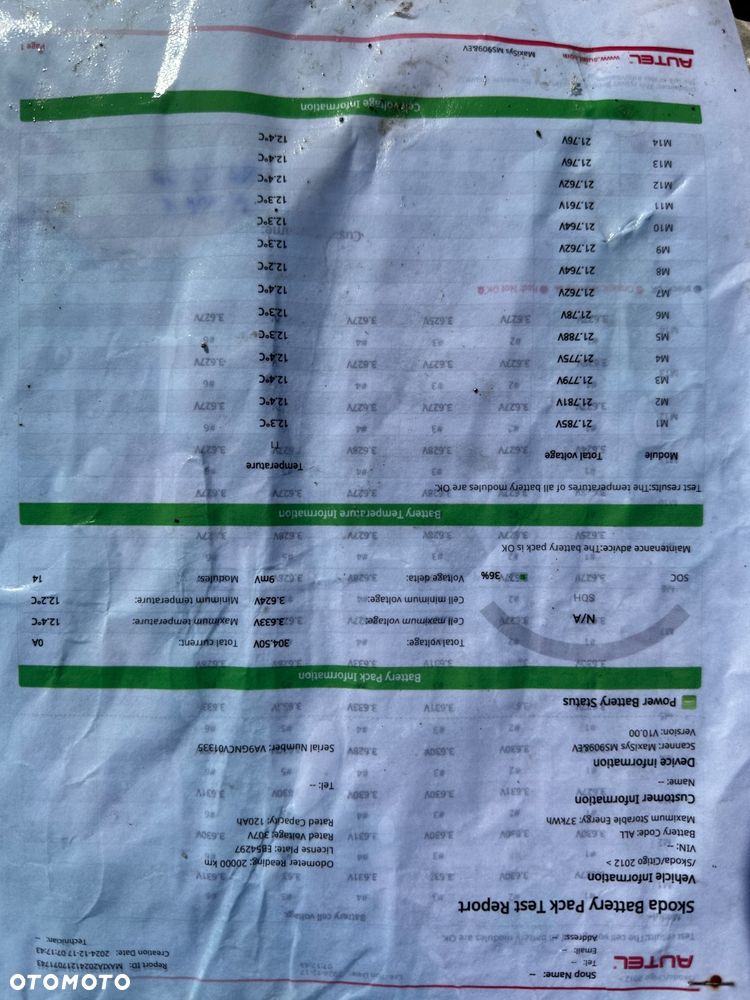 AUTEL
Shop Name: --
Tel: --
Email:
Address: --
Report ID: MAXIA20241217071743
Creation Date: 2024-12-17 07:17:43
Technician: --
Skoda Battery Pack Test Report
Vehicle Information
/Skoda/citigo 2012 >
VIN: --
Odometer Reading: 20000 km
License Plate: EB54297
Battery Code: ALL
Rated Voltage: 307V
Maximum Storable Energy: 37kWh
Rated Capacity: 120Ah
Customer Information
Name: --
Tel: --
Device information
Scanner: MaxiSys MS909&EV
Serial Number: VA9GNCV01335
Version: V10.00
Power Battery Status
Battery Pack Information
N/A
SOH
Total voltage: 304.50V
Total current: 0A
Cell maximum voltage: 3.633V
Maximum temperature: 12.4°C
Cell minimum voltage: 3.624V
Minimum temperature: 12.2°C
SOC 36%
Voltage delta: 9mV
Modules: 14
Maintenance advice:The battery pack is OK
Battery Temperature Information
Test results:The temperatures of all battery modules are OK.
Module Total voltage Temperature
T1
M1 21.785V 12.3°C
M2 21.781V 12.4°C
M3 21.779V 12.4°C
M4 21.775V 12.4°C
M5 21.788V 12.3°C
M6 21.78V 12.3°C
M7 21.762V 12.4°C
M8 21.764V 12.2°C
M9 21.762V 12.3°C
M10 21.764V 12.3°C
M11 21.761V 12.3°C
M12 21.762V 12.4°C
M13 21.76V 12.4°C
M14 21.76V 12.4°C
Cell Voltage Information
AUTEL www.autel.com
MaxiSys MS909&EV
Page 1
OTOMOTO